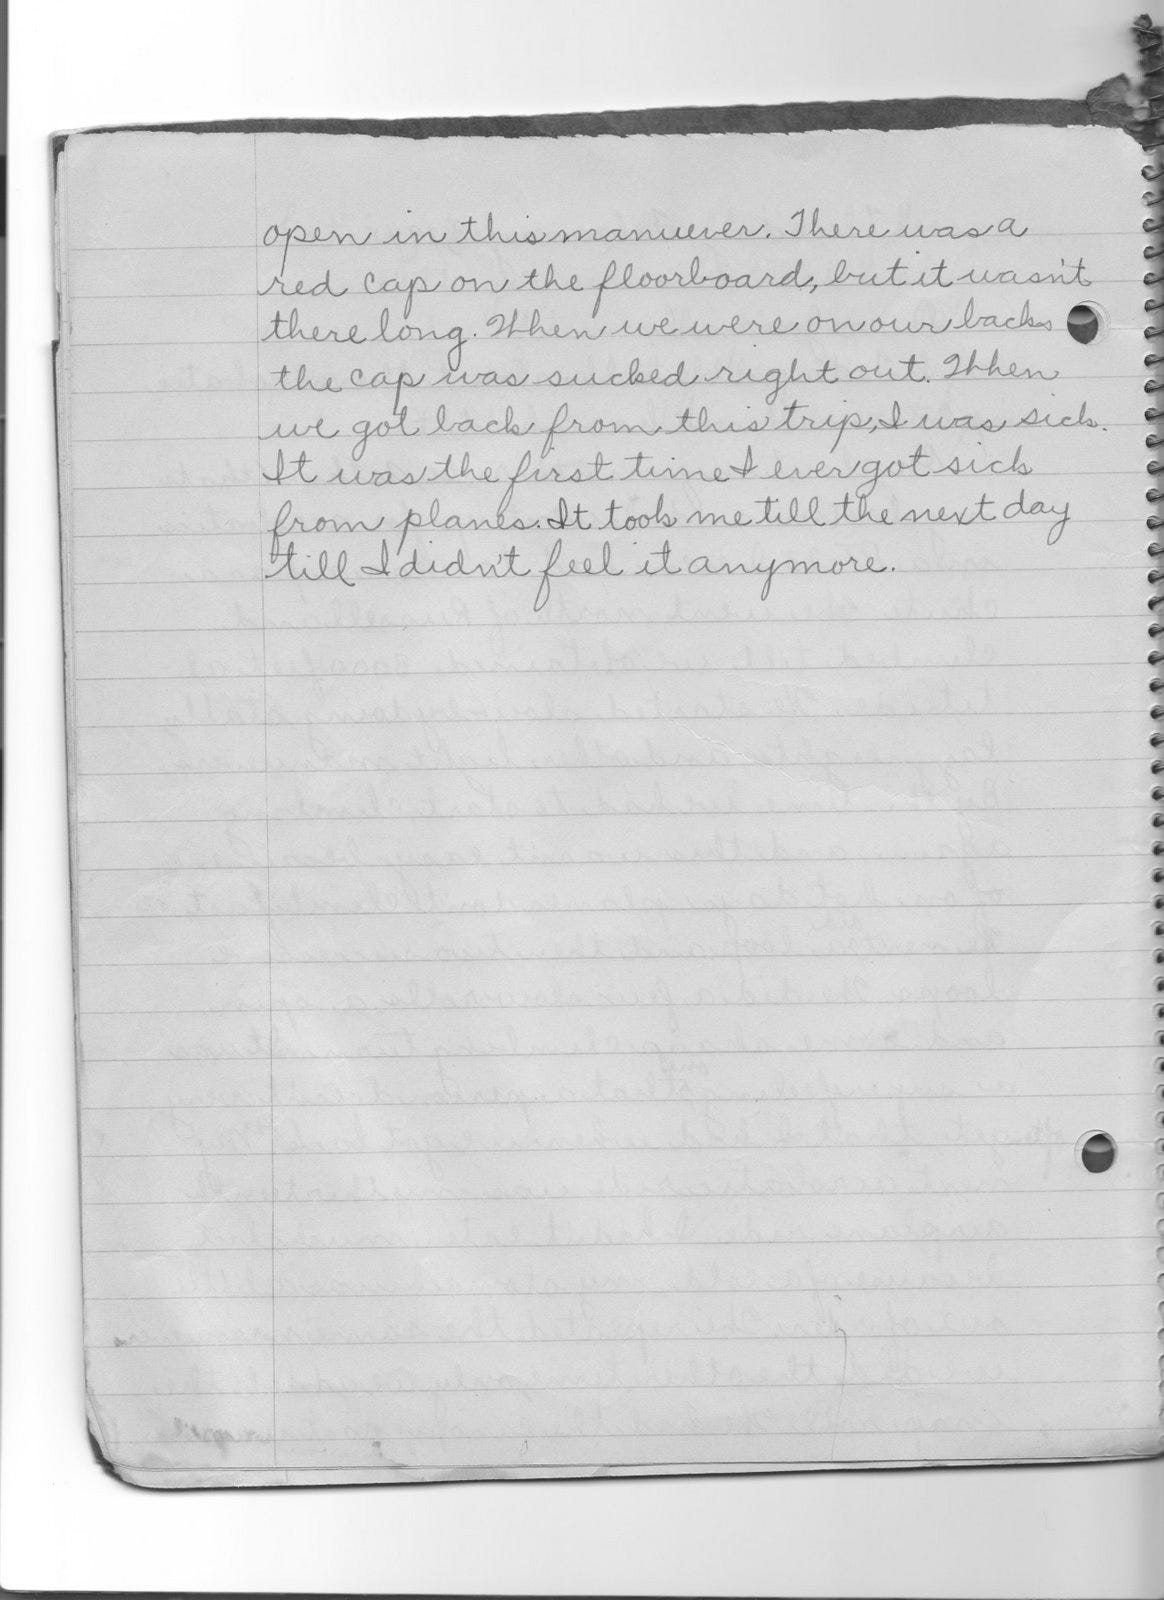 open in this manuever. There was a
red cap on the floorboard, but it wasn't
there long. When we were on our backs
the cap was sucked right out. When
we got back from this trip, I was sick.
It was the first time I ever got sick
from planes. It took me till the next day
till I didn't feel it anymore.